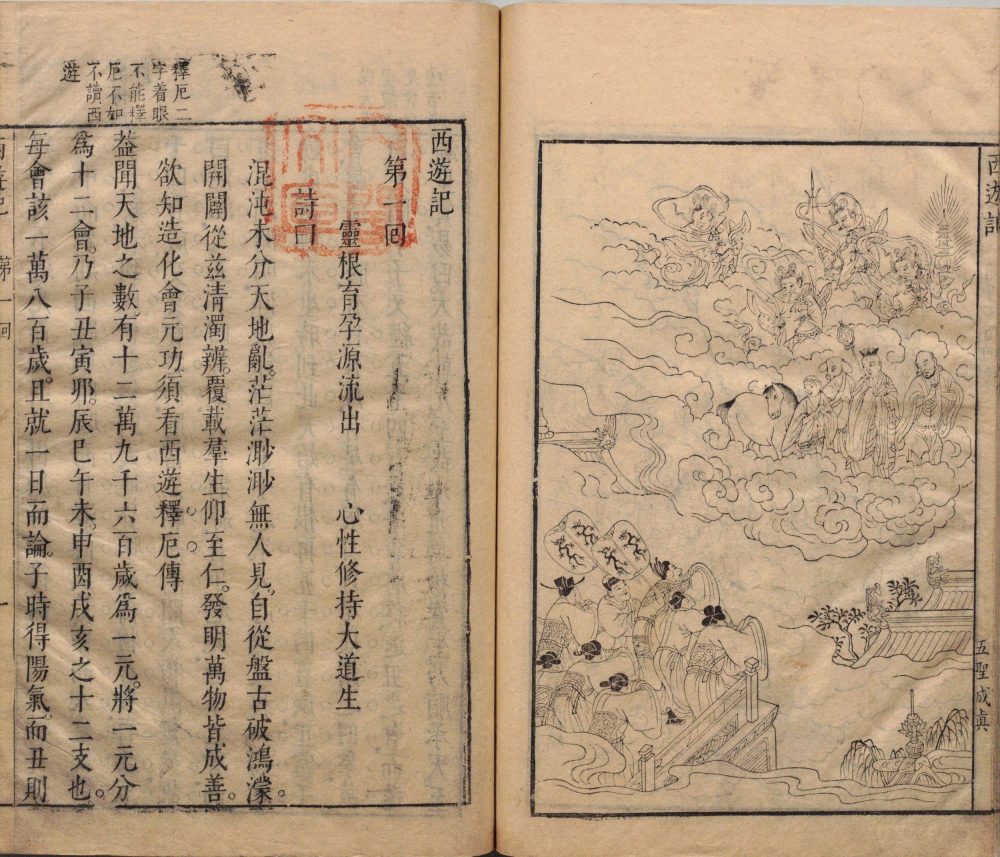 西遊記
五聖成真
釋厄二
字着眼
不能釋
厄不如
不讀西
遊
西遊記
第一囘
靈根育孕源流出　心性修持大道生
詩曰
混沌未分天地亂。茫茫渺渺無人見。自從盤古破鴻濛。
開闢從兹清濁辨。覆載羣生仰至仁。發明萬物皆成善。
欲知造化會元功須看西遊釋厄傳
葢聞天地之數有十二萬九千六百歲爲一元。將一元分
爲十二會。乃子丑寅卯。辰巳午未。申酉戌亥之十二支也。
每會該一萬八百歲。且就一日而論。子時得陽氣。而丑則
西遊記　第一囘　一